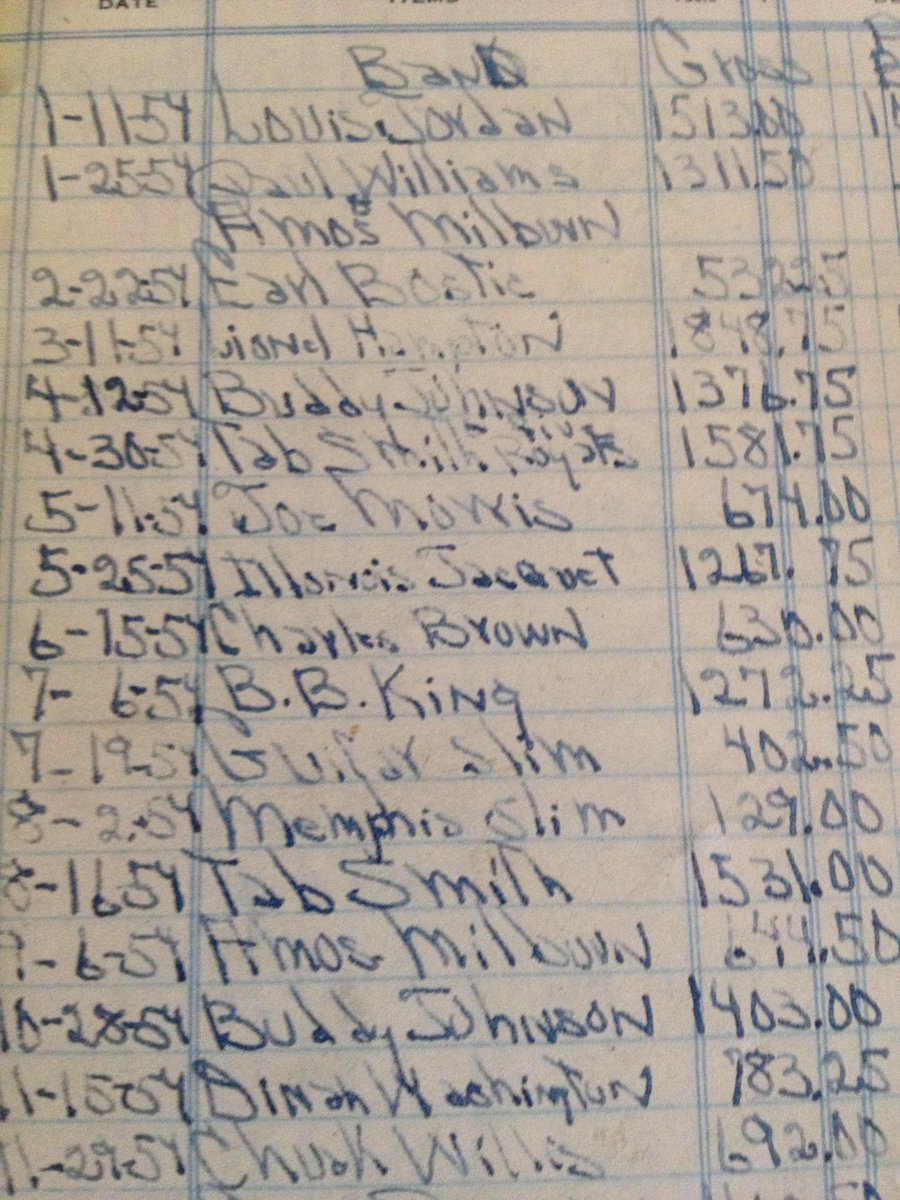 DATE ITEMS
Band Gross
1-11-54 Louis Jordan 1513.00
1-25-54 Paul Williams 1311.50
& Amos Milburn
2-22-54 Earl Bostic 532.25
3-11-54 Lionel Hampton 1848.75
4-12-54 Buddy Johnson 1376.75
4-30-54 Tab Smith Royals 1581.75
5-11-54 Joe Morris 674.00
5-25-54 Illonois Jacquet 1267.75
6-15-54 Charles Brown 630.00
7-6-54 B.B. King 1272.25
7-19-54 Guitar Slim 402.50
8-2-54 Memphis Slim 129.00
8-16-54 Tab Smith 1531.00
9-6-54 Amos Milburn 644.50
10-28-54 Buddy Johnson 1403.00
11-15-54 Dinah Washington 783.25
11-29-54 Chuck Willis 692.00